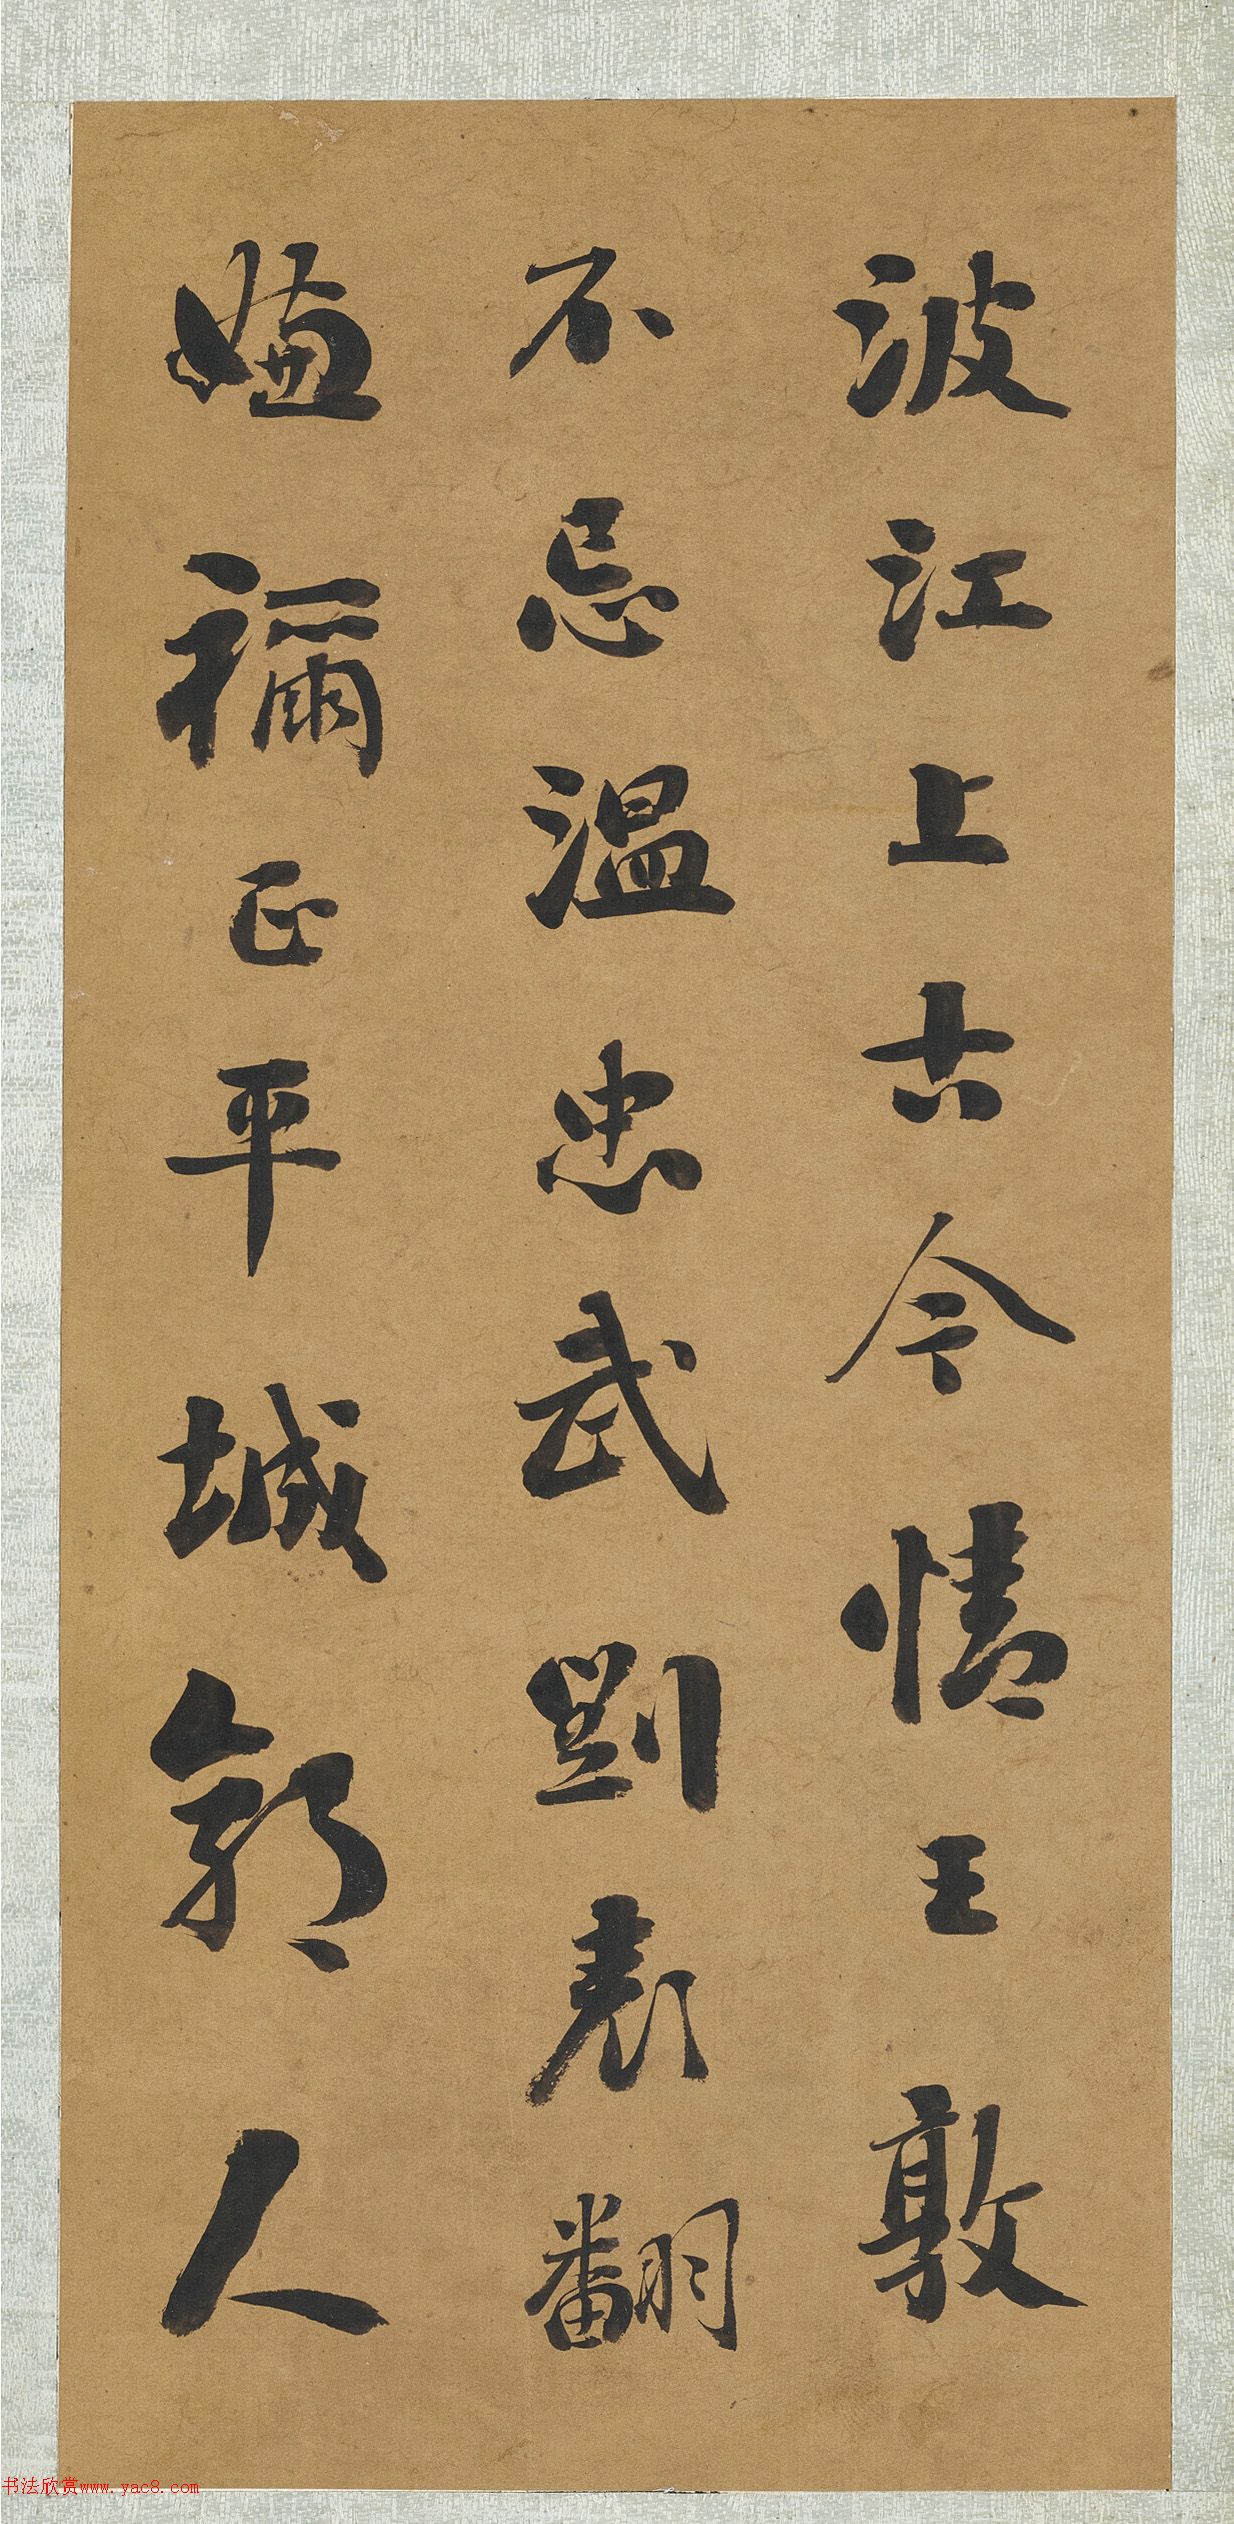 波江上古今情王敦
不忌温忠武劉表翻
嫌禰正平城郭人
书法欣赏www.yac8.com